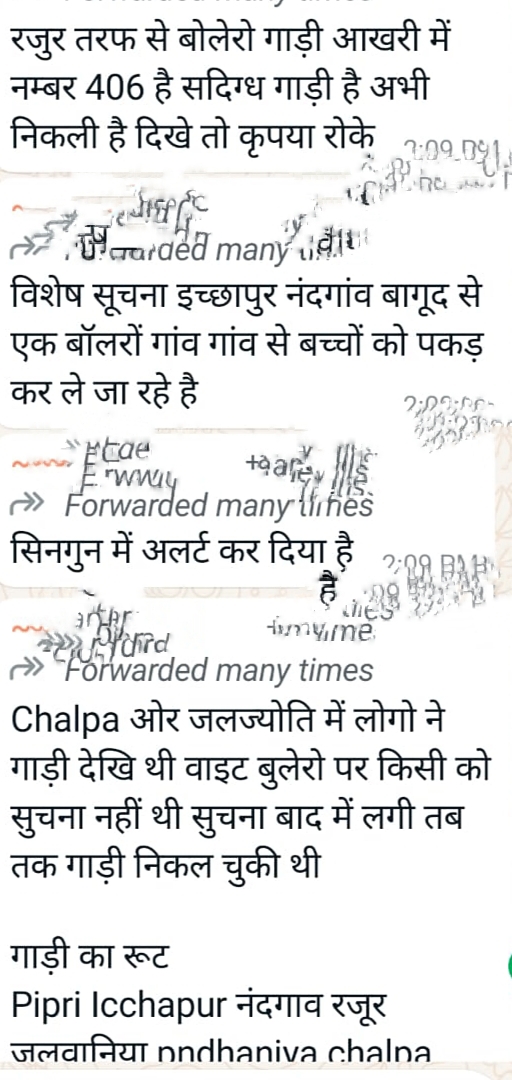 रजुर तरफ से बोलेरो गाड़ी आखरी में
नम्बर 406 है सदिग्ध गाड़ी है अभी
निकली है दिखे तो कृपया रोके
many
विशेष सूचना इच्छापुर नंदगांव बागूद से
एक बॉलरों गांव गांव से बच्चों को पकड़
कर ले जा रहे है
Forwarded many times
सिनगुन में अलर्ट कर दिया है
है
Forwarded many times
Chalpa ओर जलज्योति में लोगो ने
गाड़ी देखि थी वाइट बुलेरो पर किसी को
सुचना नहीं थी सुचना बाद में लगी तब
तक गाड़ी निकल चुकी थी
गाड़ी का रूट
Pipri Icchapur नंदगाव रजूर
जलवानिया pndhaniya chalpa